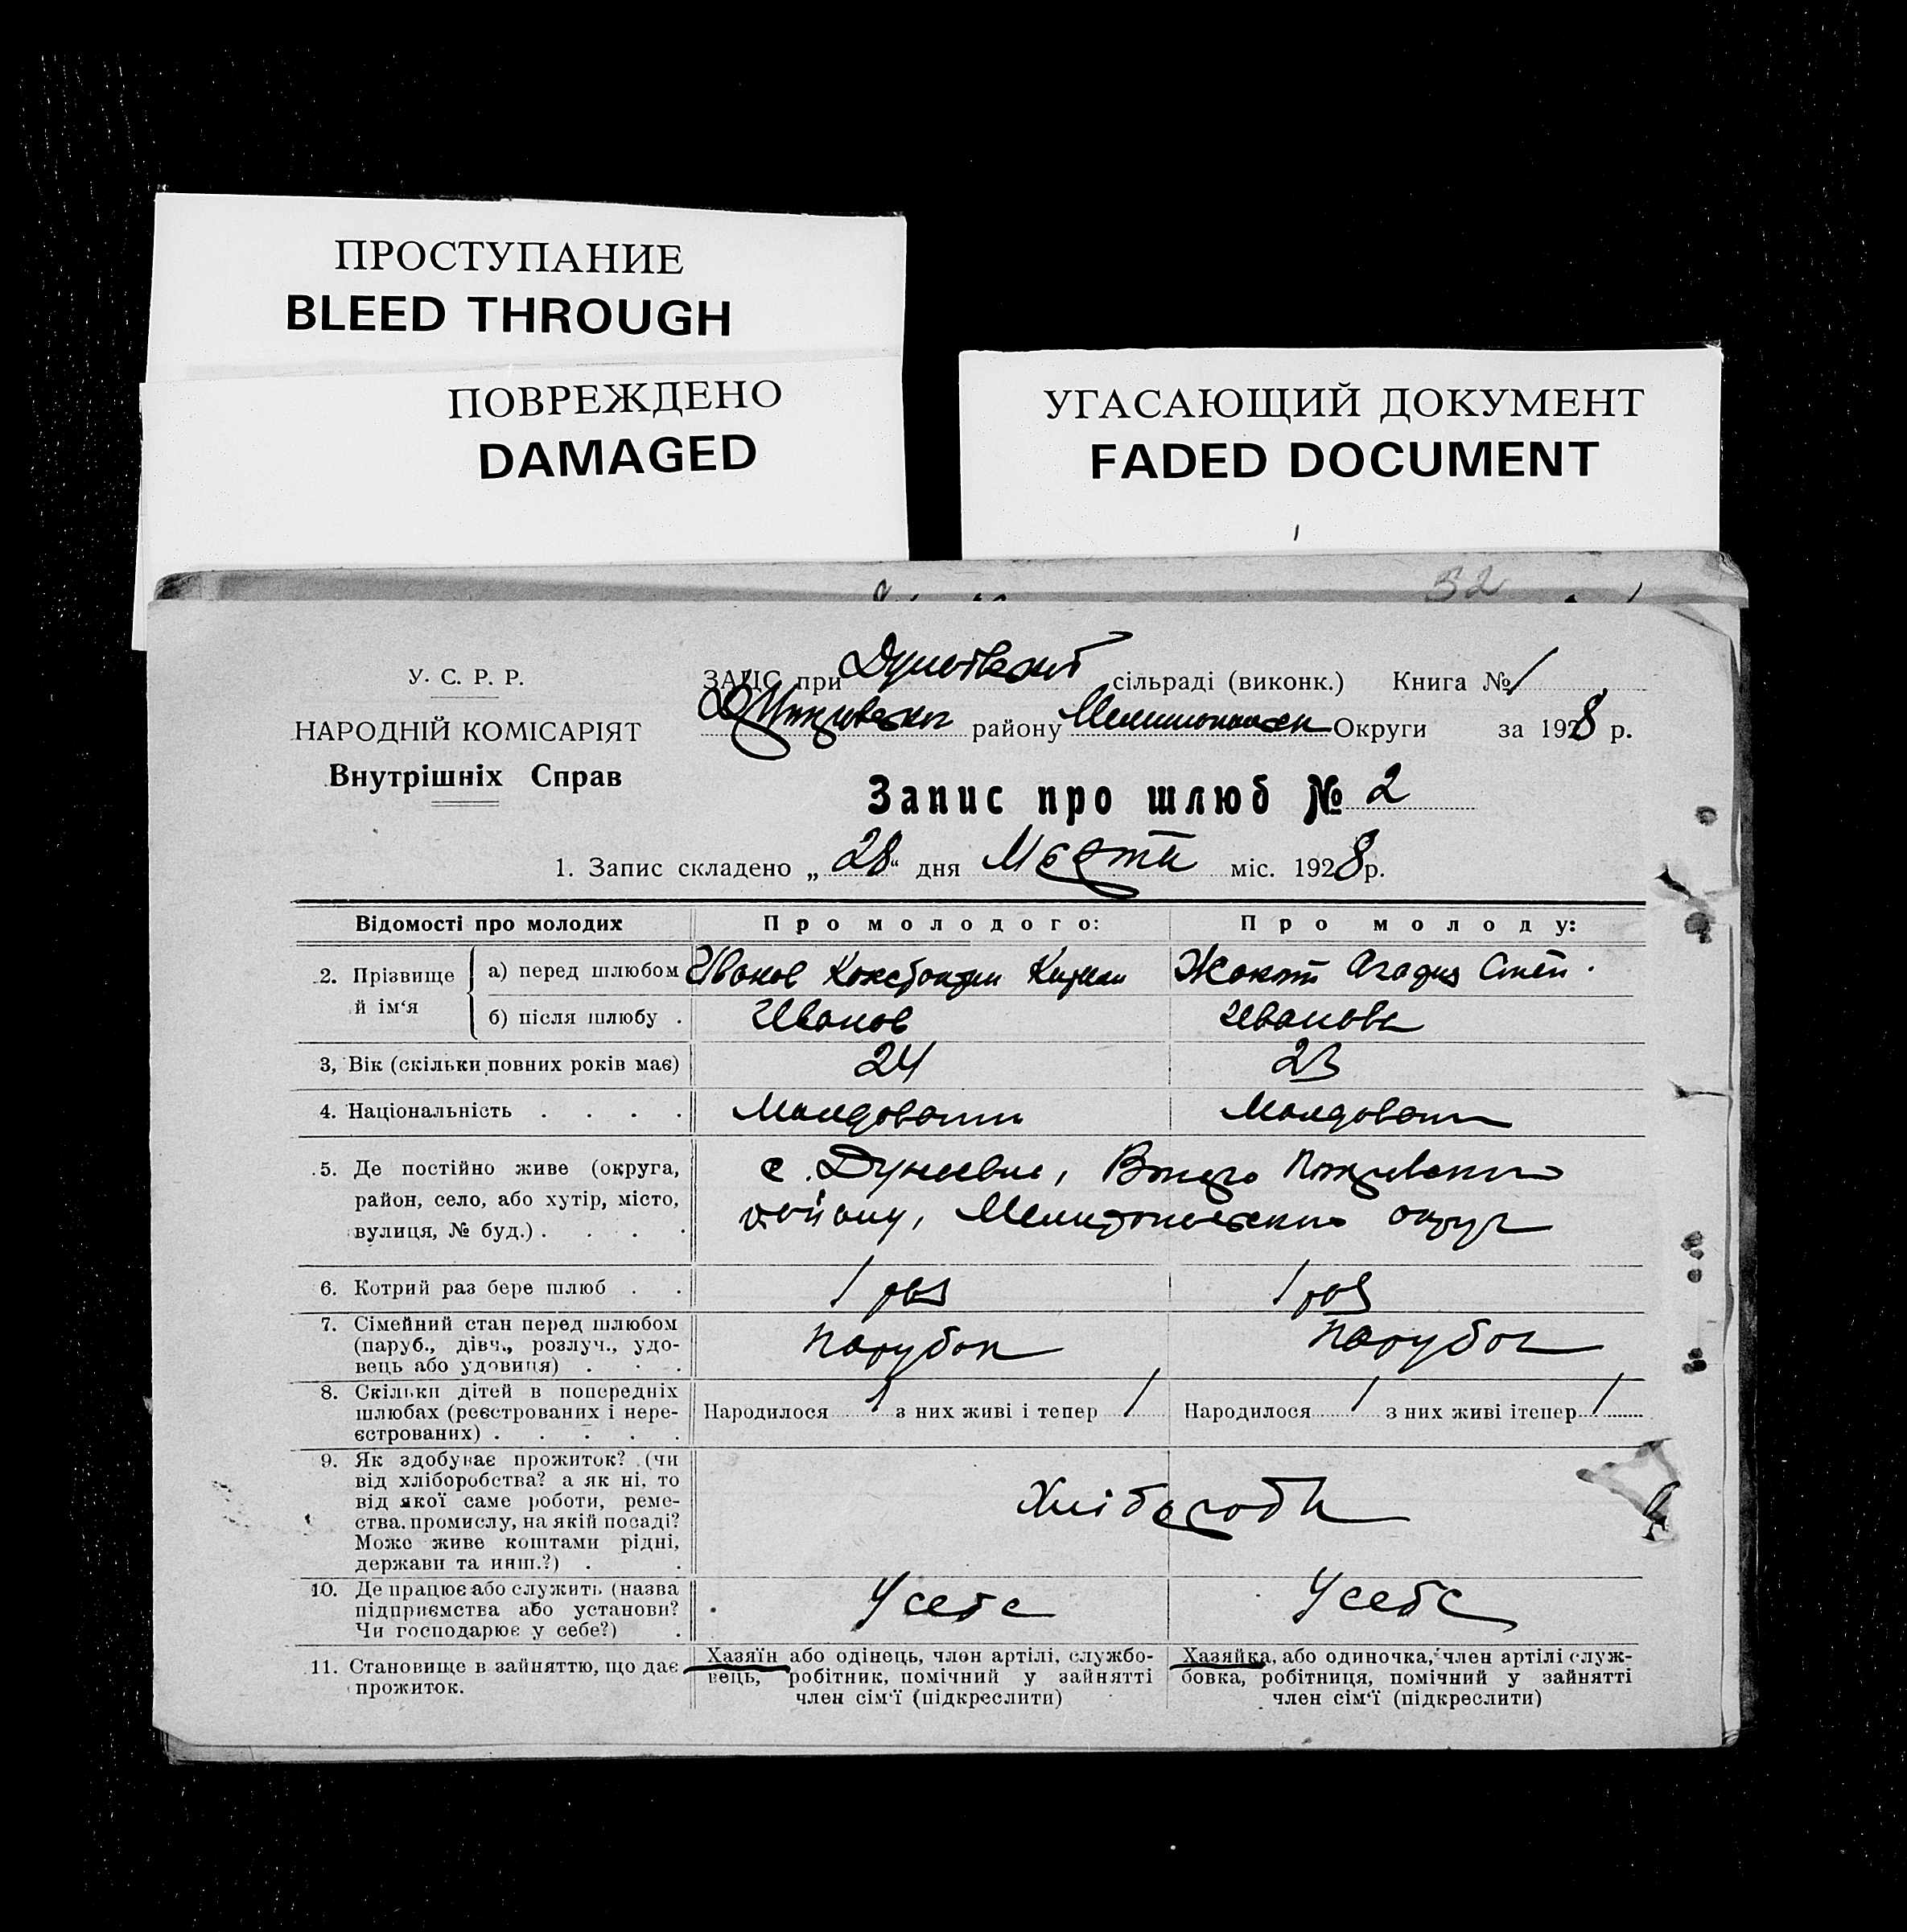 ПРОСТУПАНИЕ
BLEED THROUGH
ПОВРЕЖДЕНО
DAMAGED
УГАСАЮЩИЙ ДОКУМЕНТ
FADED DOCUMENT
32
У. С. Р. Р.
НАРОДНІЙ КОМІСАРІЯТ
Внутрішніх Справ
ЗАПІС при сільраді (виконк.) Книга № 1
району Округи за 1928 р.
Запис про шлюб № 2
1. Запис складено „28“ дня міс. 1928 р.
Відомості про молодих
Про молодого:
Про молоду:
2. Прізвище й ім‘я
а) перед шлюбом
Иванов Констонтин
Агадия Степ.
б) після шлюбу .
Иванов
Иванова
3, Вік (скільки повних років має)
24
23
4. Національність . . . .
Молдовани
Молдован
5. Де постійно живе (округа,
район, село, або хутір, місто,
вулиця, № буд.) . . . .
с. Дунаевка,
району, Мелитопольского округ
6. Котрий раз бере шлюб . .
1 раз
1 раз
7. Сімейний стан перед шлюбом
(паруб., дівч., розлуч., удо-
вець або удовиця) . . .
Парубок
Парубок
8. Скільки дітей в попередніх
шлюбах (реєстрованих і нере-
єстрованих) . . . . .
Народилося / з них живі і тепер /
Народилося / з них живі ітепер /
9. Як здобуває прожиток? (чи
від хліборобства? а як ні, то
від якої саме роботи, реме-
ства, промислу, на якій посаді?
Може живе коштами рідні,
держави та инш.?) . .
Хлібороби
10. Де працює або служить (назва
підприємства або установи?
Чи господарює у себе?) .
У себе
У себе
11. Становище в зайняттю, що дає
прожиток.
Хазяїн або одінець, член артілі, службо-
вець, робітник, помічний у зайнятті
член сім‘ї (підкреслити)
Хазяйка, або одиночка, член артілі служ-
бовка, робітниця, помічний у зайнятті
член сім‘ї (підкреслити)